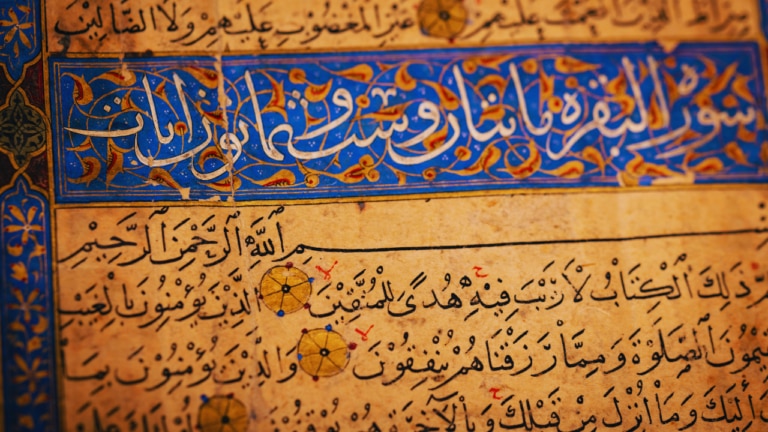 صِرَاطَ الَّذِينَ أَنْعَمْتَ عَلَيْهِمْ غَيْرِ الْمَغْضُوبِ عَلَيْهِمْ وَلَا الضَّالِّينَ
سورة البقرة مايتان وست وثمانون ايات
بِسْمِ اللَّهِ الرَّحْمَنِ الرَّحِيمِ
ذَلِكَ الْكِتَابُ لَا رَيْبَ فِيهِ هُدًى لِلْمُتَّقِينَ الَّذِينَ يُؤْمِنُونَ بِالْغَيْبِ
الصَّلَوٰةَ وَمِمَّا رَزَقْنَاهُمْ يُنْفِقُونَ وَالَّذِينَ يُؤْمِنُونَ بِمَا
إِلَيْكَ وَمَا أُنْزِلَ مِنْ قَبْلِكَ وَبِالْآخِرَةِ هُمْ يُوقِنُونَ